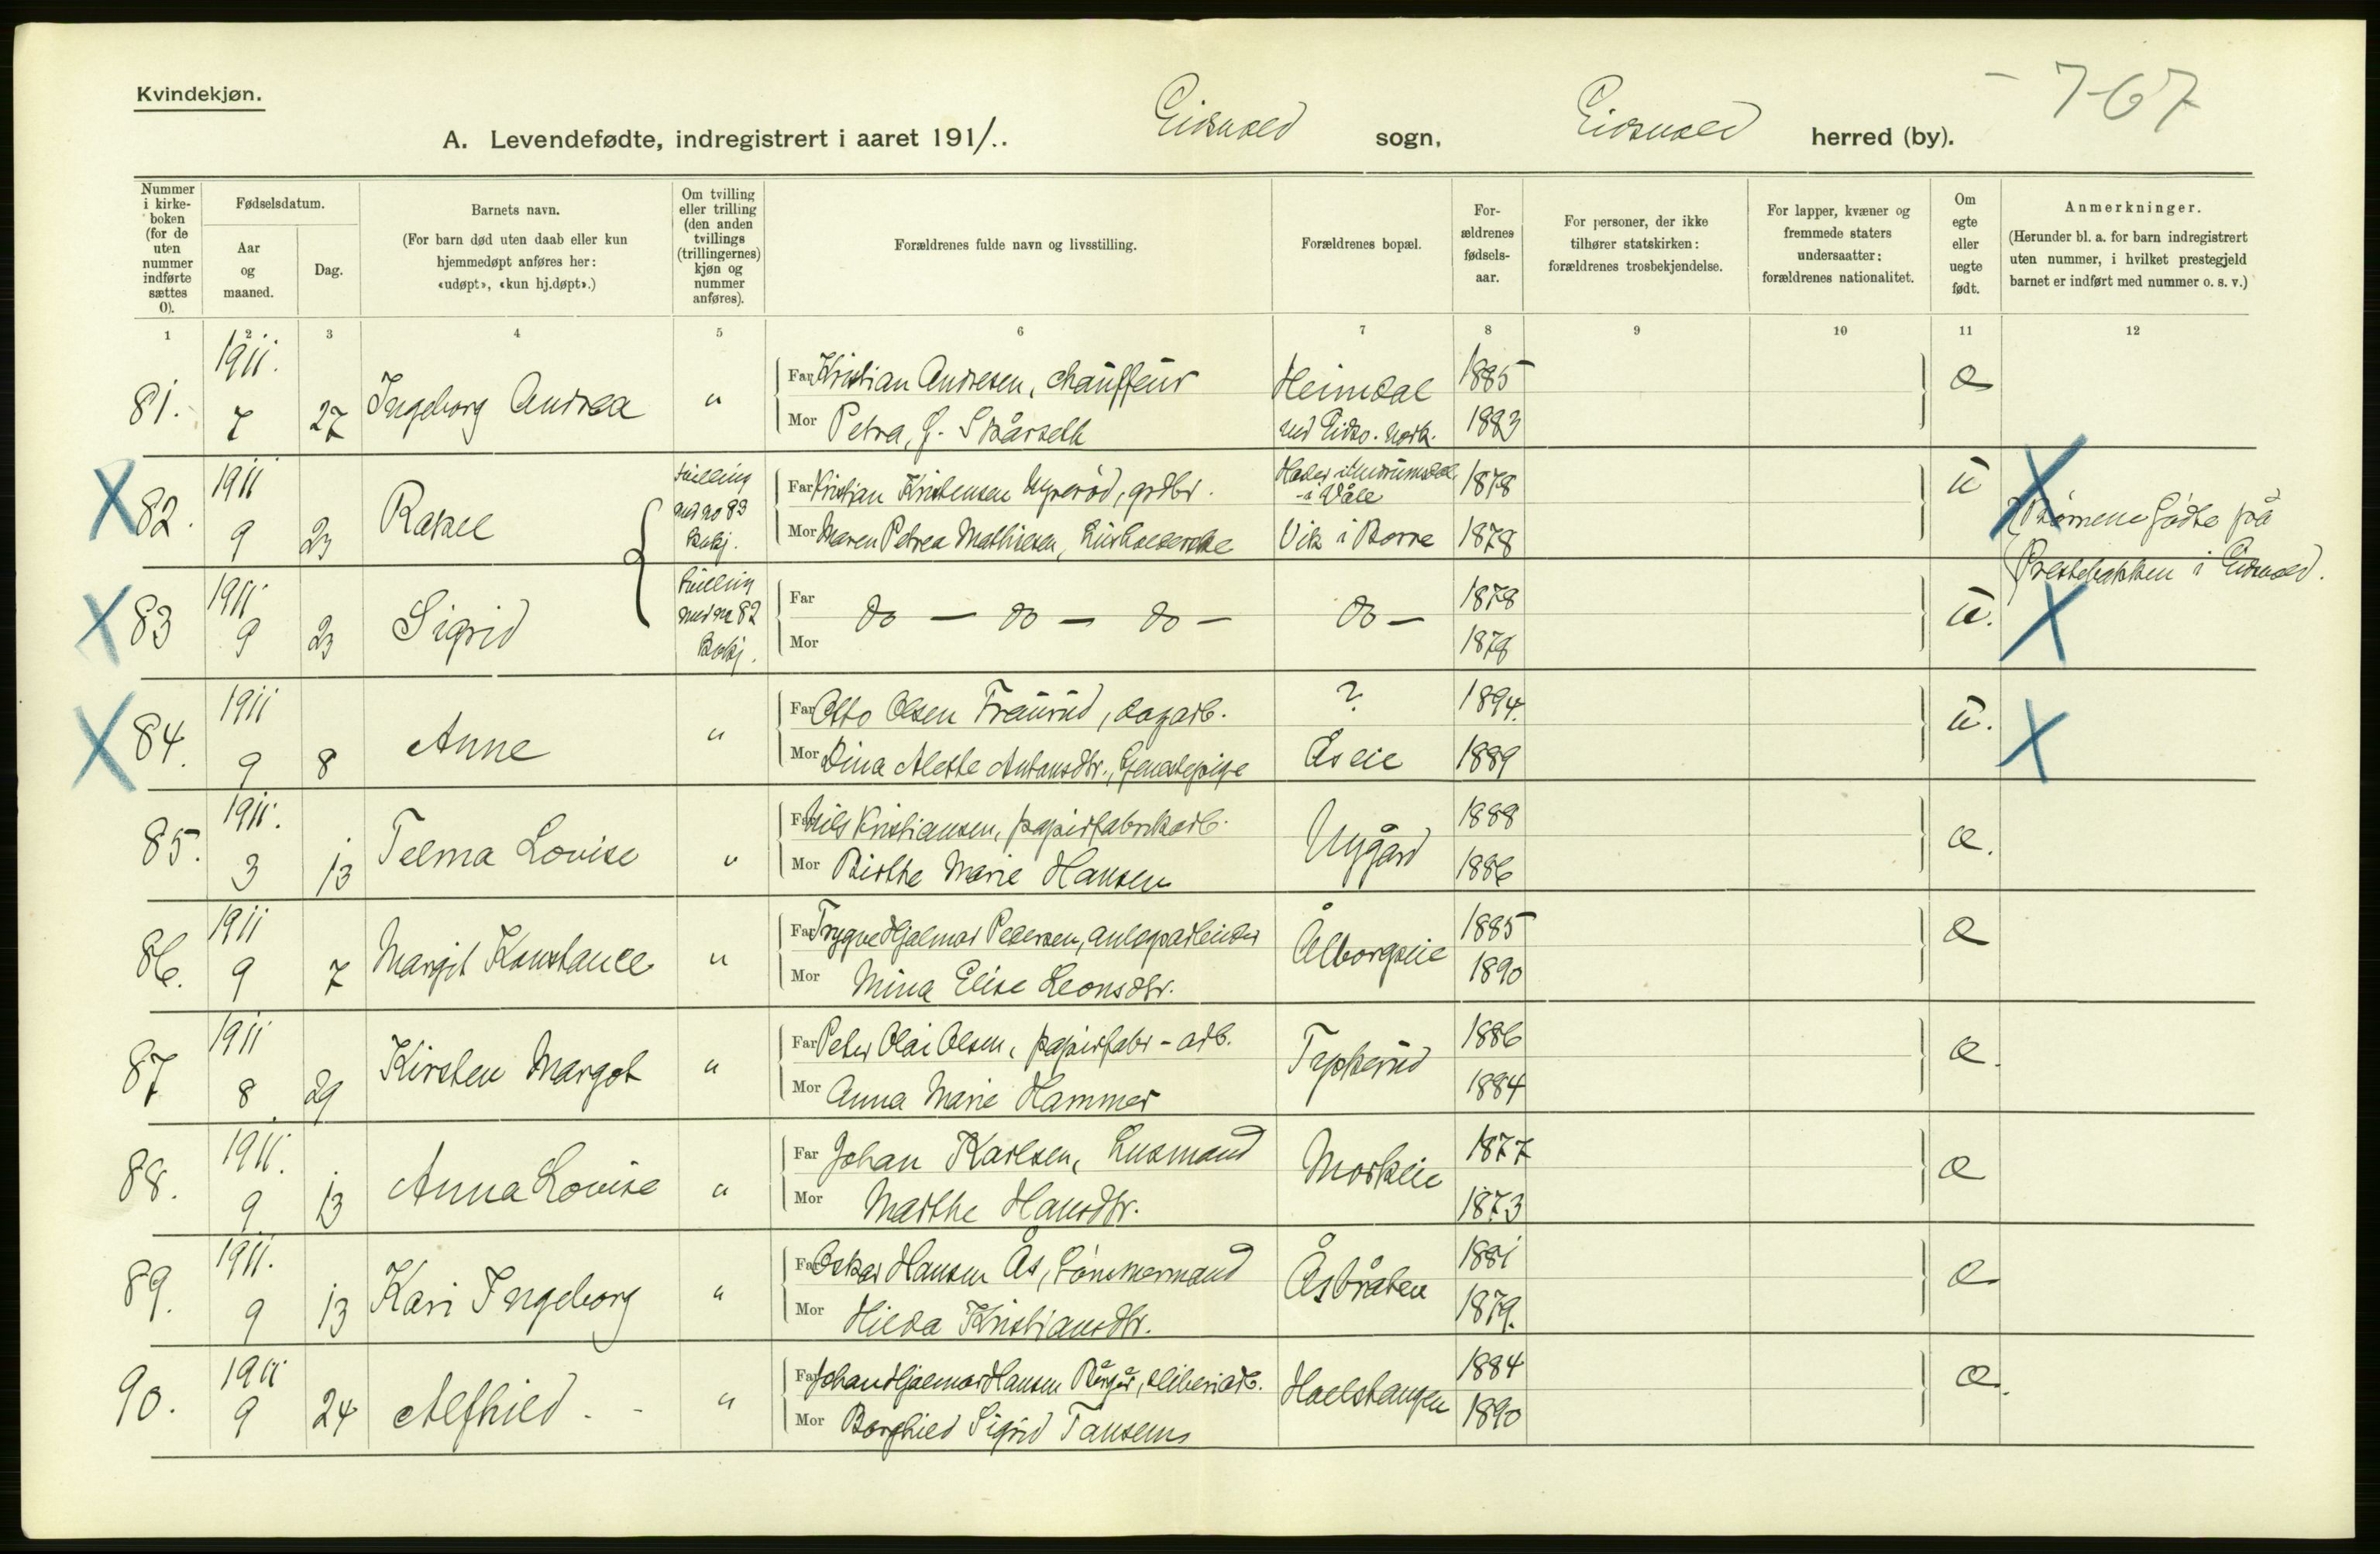 Kvindekjøn.
- 767
A. Levendefødte, indregistrert i aaret 1911. Eidsvold sogn, Eidsvold herred (by).
Nummer i kirke-boken (for de uten nummer indførte sættes 0).
Fødselsdatum.
Aar og maaned.
Dag.
Barnets navn.
(For barn død uten daab eller kun hjemmedøpt anføres her: «udøpt», «kun hj.døpt».)
Om tvilling eller trilling (den anden tvillings (trillingernes) kjøn og nummer anføres).
Forældrenes fulde navn og livsstilling.
Forældrenes bopæl.
For-ældrenes fødsels-aar.
For personer, der ikke tilhører statskirken: forældrenes trosbekjendelse.
For lapper, kvæner og fremmede staters undersaatter: forældrenes nationalitet.
Om egte eller uegte født.
Anmerkninger.
(Herunder bl. a. for barn indregistrert uten nummer, i hvilket prestegjeld barnet er indført med nummer o. s. v.)
1 2 3 4 5 6 7 8 9 10 11 12
81. 1911. 7 27 Ingeborg Andrea "
Far Kristian Andresen, chauffeur Heimdal 1885 e
Mor Petra, G. Skårseth ved Eidsv. verk. 1883
X 82. 1911 9 23 Rakel tvilling med no 83
Far Kristian Kristensen, grdbr. 1878 u X
i Våle
Mor Maren Petrea Mathisen, Vik i Borre 1878
Børnene fødte på
Prestebakken i Eidsvold.
X 83 1911 9 23 Sigrid tvilling med no 82
Far do — do — do — do — 1878 u. X
Mor 1878
X 84. 1911 9 8 Anne "
Far Otto Olsen, dagarb. ? 1894. u. X
Mor Dina Alette Antonsdtr., tjenestepige Åseie 1889
85. 1911. 3 13 Telma Lovise "
Far Nils Kristiansen, papirfabrikarb. Nygård 1888 e.
Mor Birthe Marie Hansen 1886
86. 1911 9 7 Margit Konstance "
Far Trygve Hjalmar Pedersen, anlegsarbeider Ålborgseie 1885 e
Mor Mina Elise Leonsdtr. 1890
87 1911 8 29 Kirsten Margot "
Far Peter Olai Olsen, papirfabr-arb. Trykkerud 1886 e.
Mor Anna Marie Hammer 1884
88. 1911. 9 13 Anna Lovise "
Far Johan Karlsen, husmand Morkeie 1877 e
Mor Marthe Hansdtr. 1873
89. 1911. 9 13 Kari Ingeborg "
Far Oskar Hansen Ås, tømmermand Åsbråten 1881 e
Mor Hilda Kristiansdtr. 1879.
90. 1911 9 24 Alfhild - - "
Far Johan Hjalmar Hansen, sliberiarb. Holstangen 1884 e.
Mor Borghild Sigrid 1890